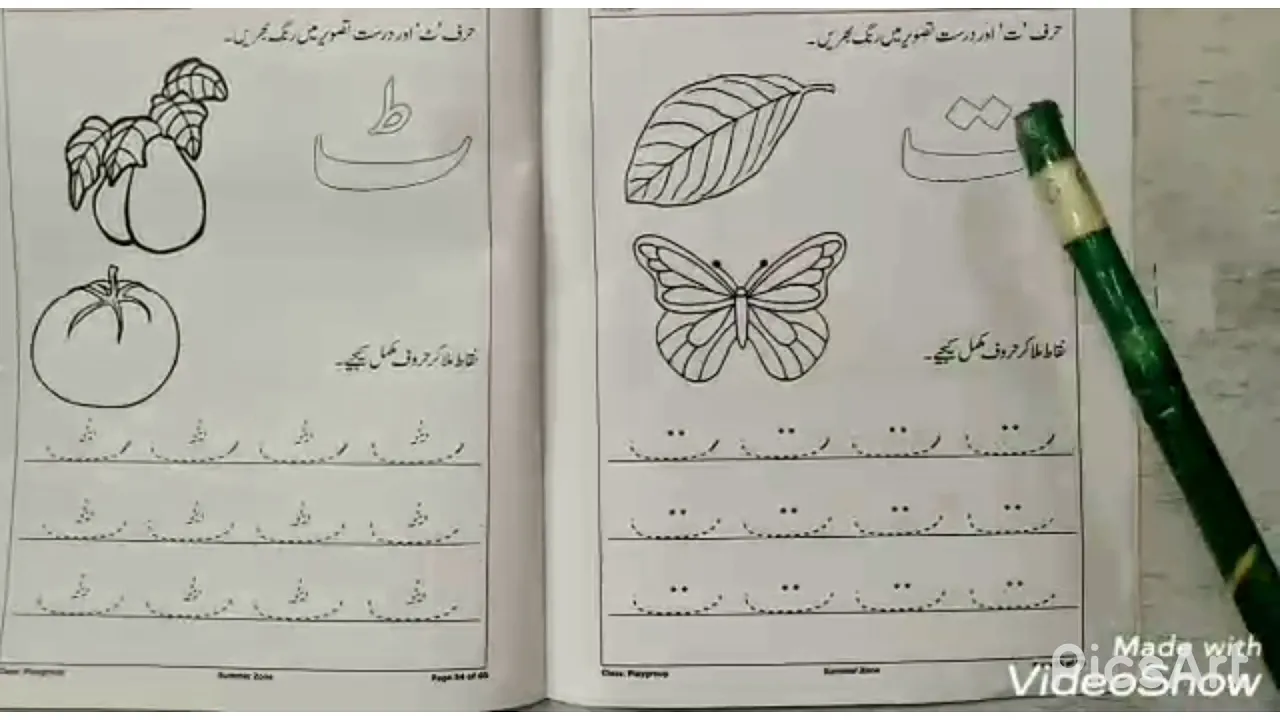 حرف 'ت' اور درست تصویر میں رنگ بھریں۔
ت
نقاط ملا کر حروف مکمل کیجیے۔
ت ت ت ت
ت ت ت ت
ت ت ت ت
Class: Playgroup
Summer Zone
حرف 'ٹ' اور درست تصویر میں رنگ بھریں۔
ٹ
نقاط ملا کر حروف مکمل کیجیے۔
ٹ ٹ ٹ ٹ
ٹ ٹ ٹ ٹ
ٹ ٹ ٹ ٹ
Class: Playgroup
Summer Zone
Page 34 of 60
Made with
PicsArt
VideoShow